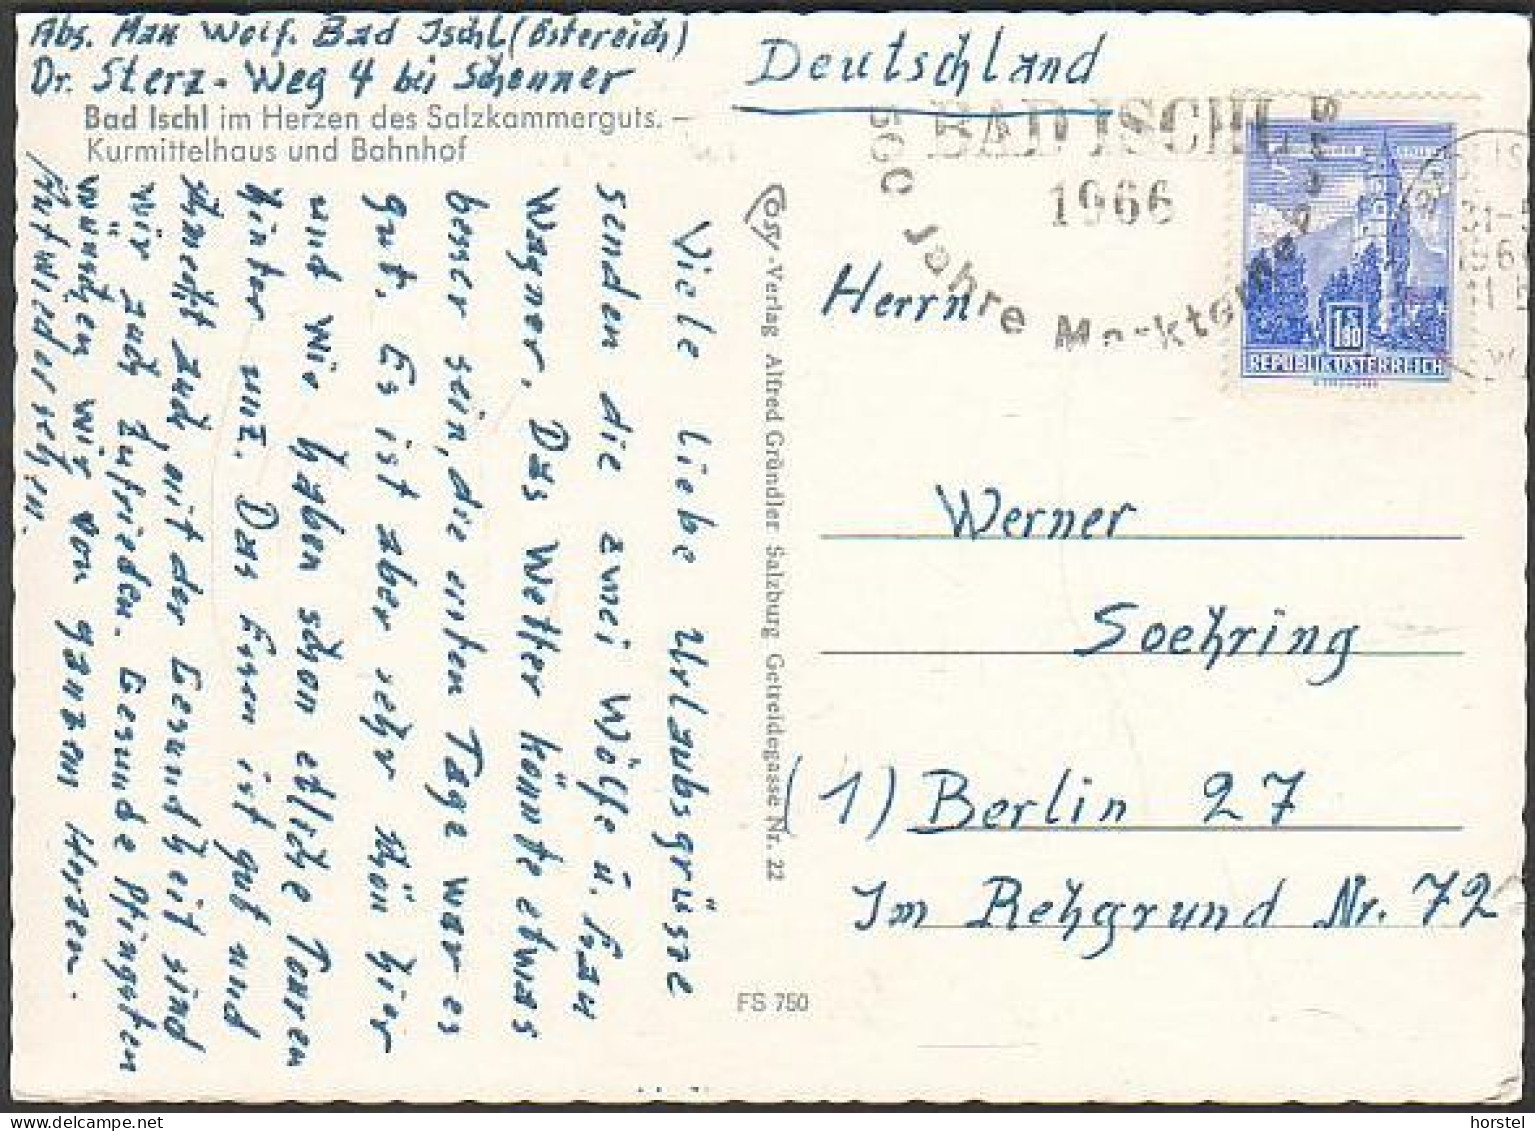 Abs. Max Wolf. Bad Ischl (östereich)
Dr. Sterz-Weg 4 bei Schenner
Bad Ischl im Herzen des Salzkammerguts. –
Kurmittelhaus und Bahnhof
Viele liebe Urlaubsgrüsse
senden die zwei Wölfe u. Frau
Wagner. Das Wetter könnte etwas
besser sein, die ersten Tage war es
gut. Es ist aber sehr schön hier
und wir haben schon etliche Touren
hinter uns. Das Essen ist gut und
schmeckt auch, mit der Gesundheit sind
wir auch zufrieden. Gesunde Pfingsten
wünschen wir von ganzem Herzen.
Aufwiedersehen.
Cosy-Verlag Alfred Gründler Salzburg Getreidegasse Nr. 22
FS 750
Deutschland
BAD ISCHL
1966
500 Jahre Markterhebung
REPUBLIK ÖSTERREICH
Herrn
Werner
Soehring
(1) Berlin 27
Im Rehgrund Nr. 72
horstel
hip-horstel